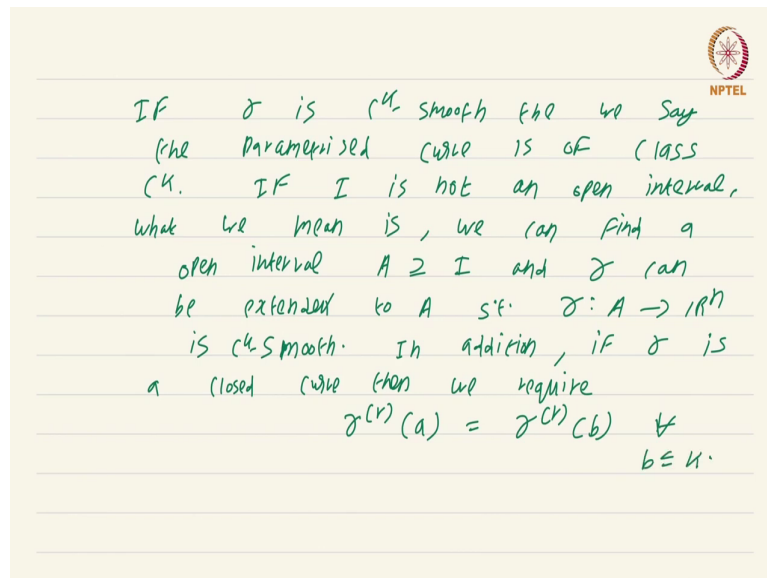 NPTEL
IF γ is C^k smooth the we say
the parametrised curve is of class
C^k. IF I is not an open interval,
what we mean is, we can find a
open interval A ⊇ I and γ can
be extended to A s.t. γ : A → ℝ^n
is C^k-smooth. In addition, if γ is
a closed curve then we require
γ^(r) (a) = γ^(r) (b) ∀
b ≤ k.